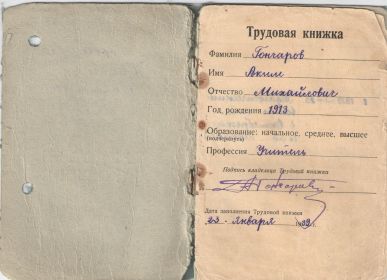 Трудовая книжка
Фамилия Гончаров
Имя Аким
Отчество Михайлович
Год рождения 1913
Образование: начальное, среднее, высшее
(подчеркнуть)
Профессия Учитель
Подпись владельца Трудовой книжки
Дата заполнения Трудовой книжки
23 января 1939 г.